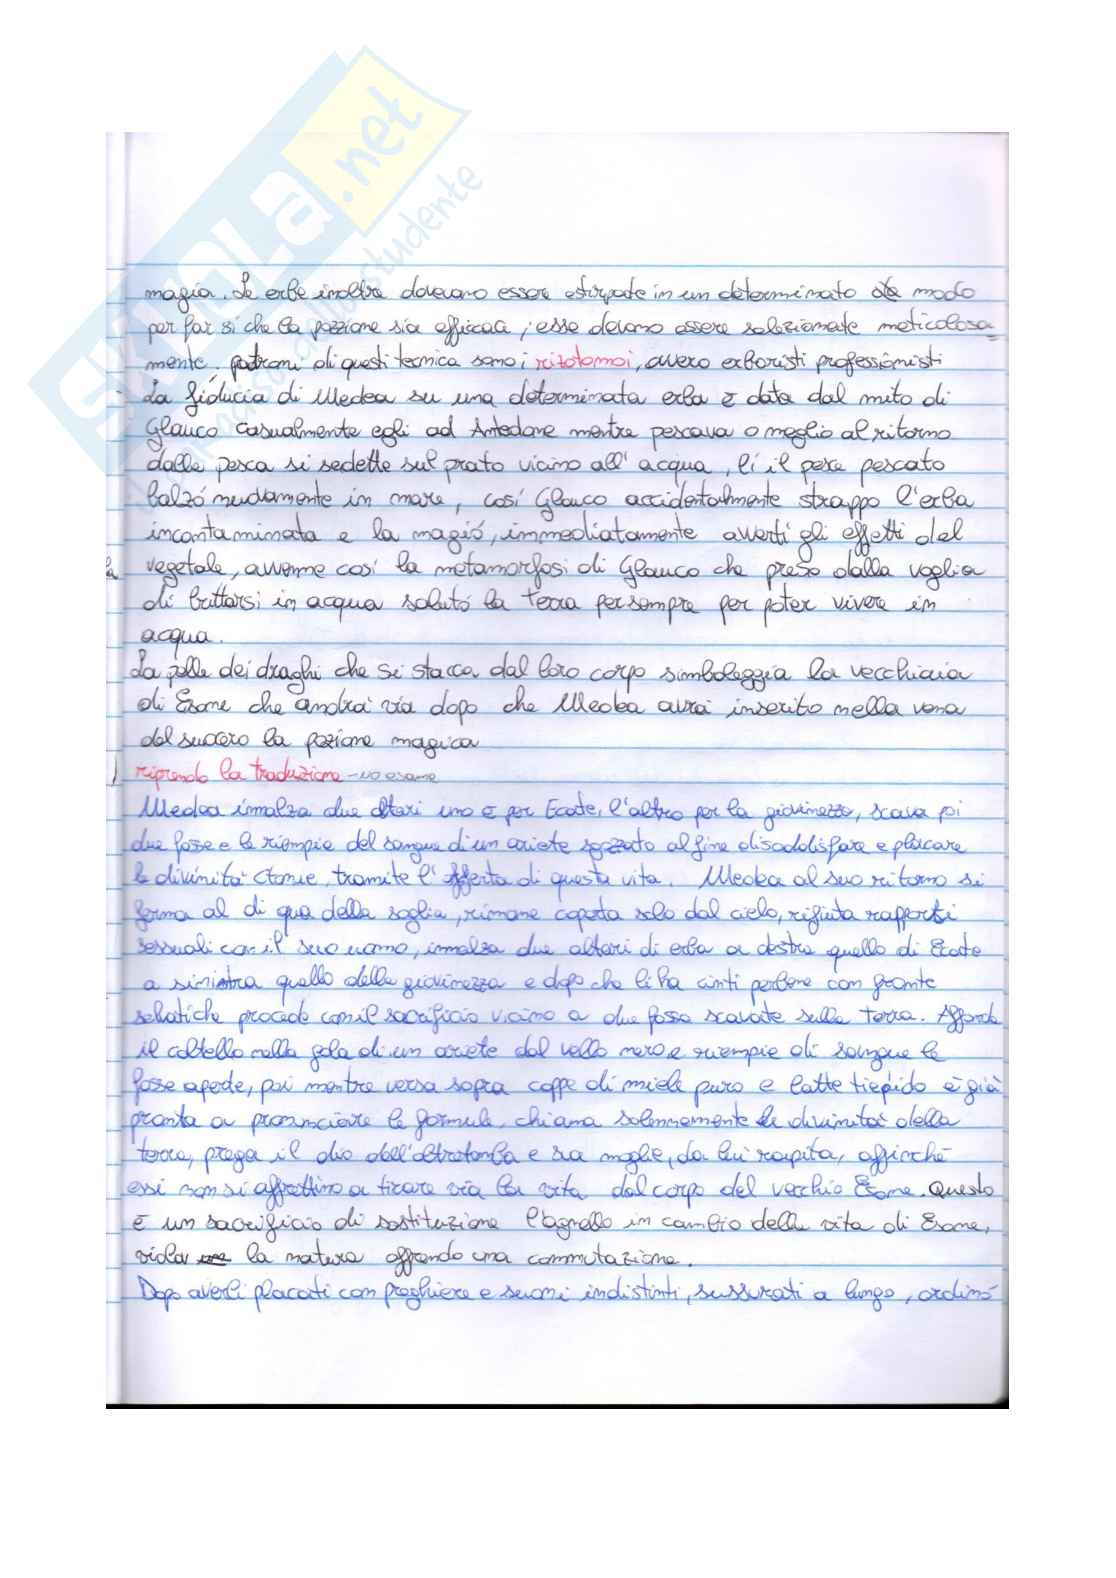 SKUOLA.net
dalla parte dello studente
magia. Le erbe inoltre dovevano essere estirpate in un determinato modo
per far si che la pozione sia efficace, esse devono essere selezionate meticolosa=
mente. patroni di questi tecnica sono i rizotomoi, ovvero erboristi professionisti
La fiducia di Medea su una determinata erba è data dal mito di
Glauco casualmente egli ad Antedone mentre pescava o meglio al ritorno
dalla pesca si sedette sul prato vicino all'acqua, lí il pesce pescato
balzó nuovamente in mare, cosí Glauco accidentalmente strappo l'erba
incontaminata e la mangió, immediatamente avvertí gli effetti del
vegetale, avvenne cosí la metamorfosi di Glauco che preso dalla voglia
di buttarsi in acqua salutó la terra per sempre per poter vivere in
acqua.
La pelle dei draghi che si stacca dal loro corpo simboleggia la vecchiaia
di Esone che andrá via dopo che Medea avrá inserito nella vena
del suocero la pozione magica
riprendo la traduzione - no esame
Medea innalza due altari uno è per Ecate, l'altro per la giovinezza, scava poi
due fosse e le riempie del sangue di un ariete sgozzato al fine di soddisfare e placare
le divinitá ctonie, tramite l'offerta di questa vita. Medea al suo ritorno si
ferma al di qua della soglia, rimane coperta solo dal cielo, rifiuta rapporti
sessuali con il suo uomo, innalza due altari di erba a destra quello di Ecate
a sinistra quello della giovinezza e dopo che li ha cinti perbene con fronte
selvatiche procede con il sacrificio vicino a due fosse scavate sulla terra. Affonda
il coltello nella gola di un ariete dal vello nero e riempie di sangue le
fosse aperte, poi mentre versa sopra coppe di miele puro e latte tiepido è già
pronta a pronunciare le formule, chiama solennemente le divinitá della
terra, prega il dio dell'oltretomba e sua moglie, da lui rapita, affinché
essi non si affrettino a tirare via la vita dal corpo del vecchio Esone. Questo
è un sacrificio di sostituzione l'agnello in cambio della vita di Esone,
viola la natura offrendo una commutazione.
Dopo averli placati con preghiere e suoni indistinti, sussurati a lungo, ordinó